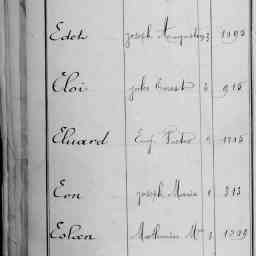 Edet Joseph Augustin 3 1095
Eloi Jules Ernest 6 916
Eluard Eug. Pierre 1715
Eon Joseph Marie 1 313
Esken Mathurin Mie 1 1309